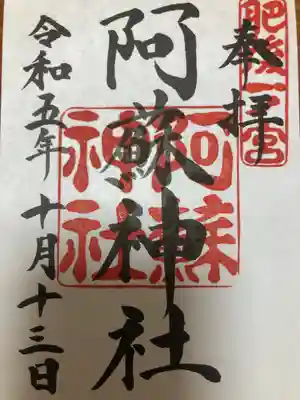 奉拝
肥後一宮
阿蘇神社
阿蘇神社
令和五年十月十三日